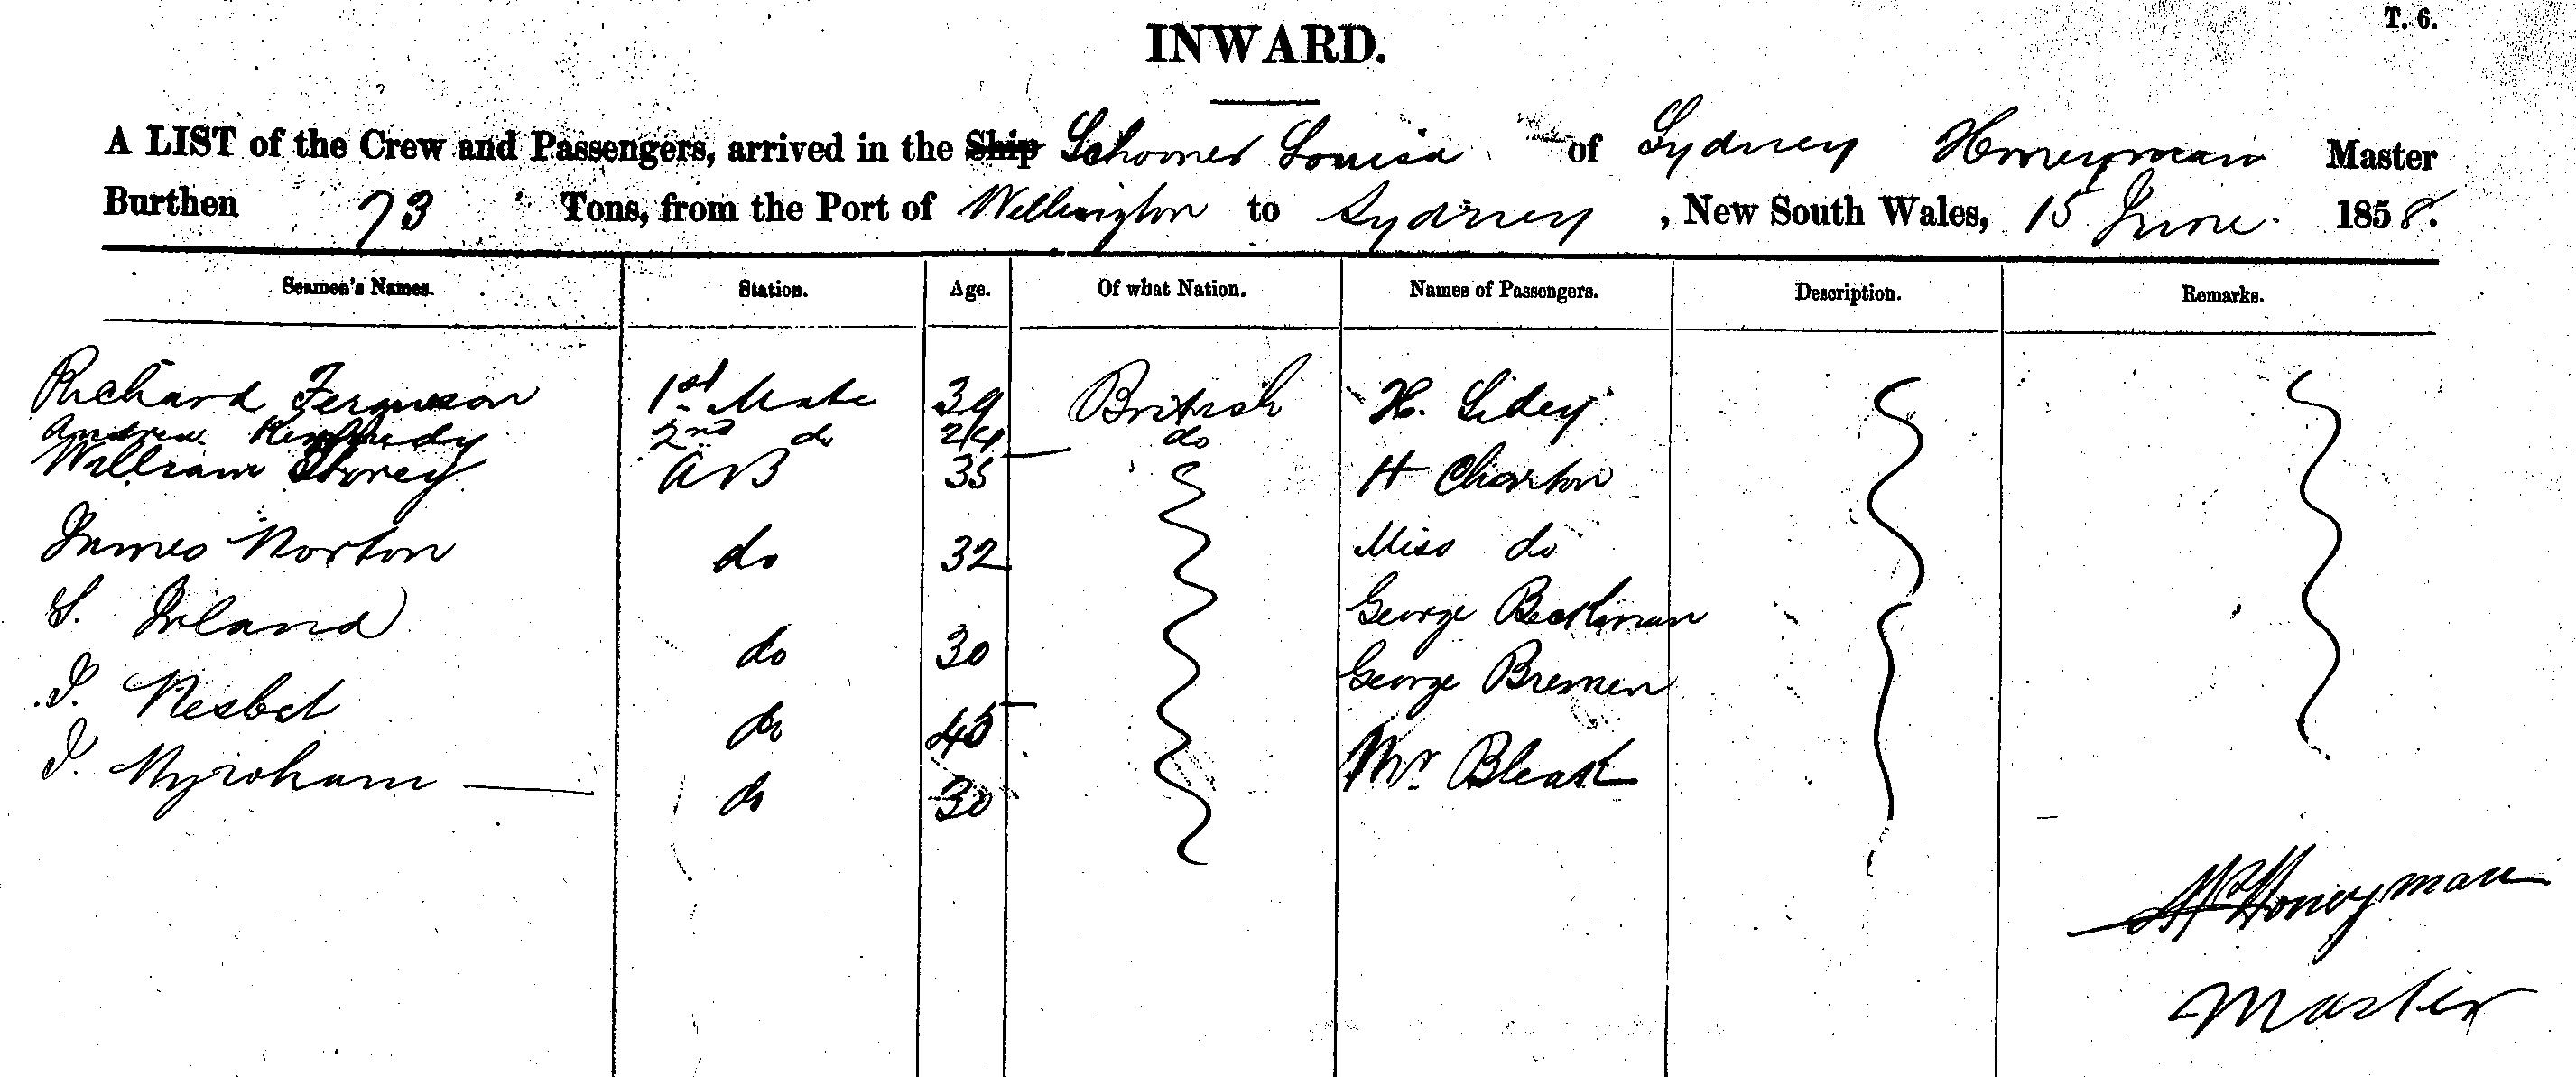 T. 6.
INWARD.
A LIST of the Crew and Passengers, arrived in the Ship Schooner Louisa of Sydney Honeyman Master
Burthen 73 Tons, from the Port of Wellington to Sydney, New South Wales, 15 June 1858.
Seamen's Names. Station. Age. Of what Nation. Names of Passengers. Description. Remarks.
Richard Ferguson 1st Mate 39 British H. Sidey
Andrew Kennedy 2nd do 24 do
William Storey AB 35 H Charton
James Norton do 32 Miss do
S. Irland do 30 George
J. Nesbet do 45 George Bremen
J. do 30 Mr
Honeyman
Master